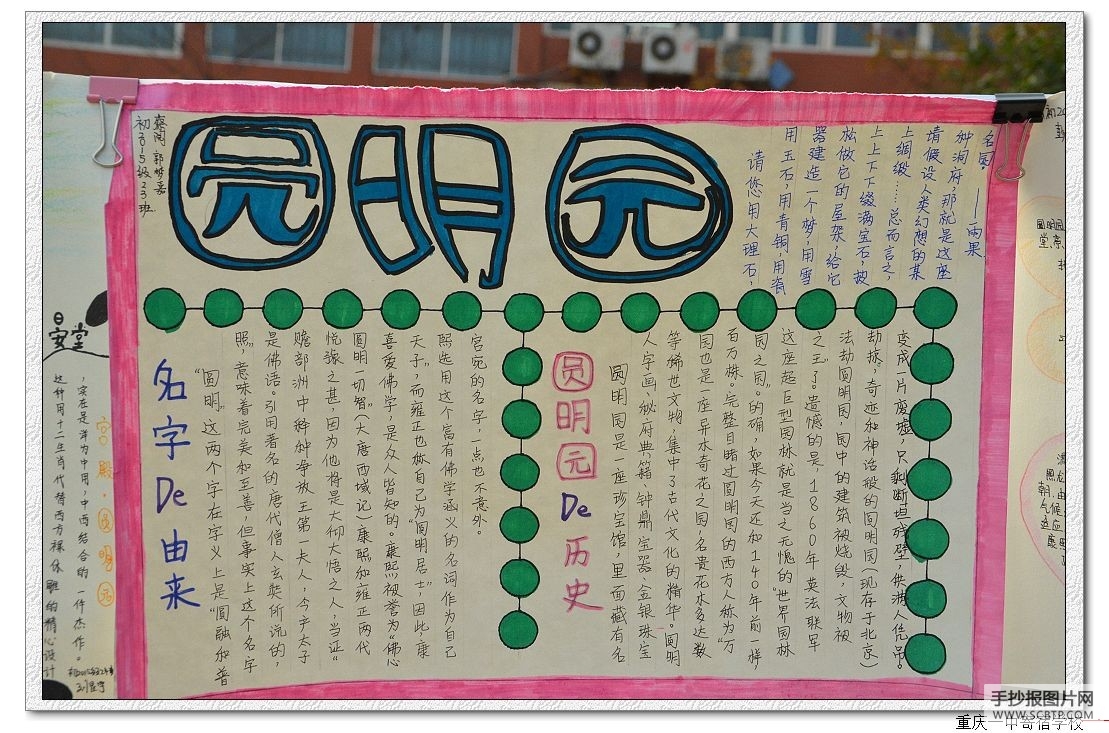 初2015级23班
圆明元
请您用大理石，
用玉石，用青铜，用瓷
器建造一个梦，用雪
松做它的屋架，给它
上上下下缀满宝石，披
上绸缎……总而言之，
请假设人类幻想的某
种洞府，那就是这座
名园。
——雨果
名字De由来
“圆明”这两个字在字义上是“圆融和普
照”，意味着完美和至善，但事实上这个名字
是佛语。引用著名的唐代僧人玄奘所说的，
赡部洲中种种净故 王第一夫人，今产太子
悦豫之甚，因为他将是大彻大悟之人，当证“
圆明一切智”《大唐西域记》康熙和雍正两代
喜爱佛学，是众人皆知的。康熙被誉为“佛心
天子”，而雍正也称自己为“圆明居士”，因此，康
熙选用这个富有佛学涵义的名词作为自己
宫宛的名字，一点也不意外。
圆明元De历史
圆明园是一座珍宝馆，里面藏有名
人字画、秘府典籍、钟鼎宝器、金银珠宝
等稀世文物，集中了古代文化的精华。圆明
园也是一座异木奇花之园，名贵花木多达数
百万株。完整目睹过圆明园的西方人称为“万
园之园。”的确，如果今天还和140年前一样
这座超巨型园林就是当之无愧的“世界园林
之王”了。遗憾的是，1860年英法联军
法劫圆明园，园中的建筑被烧毁，文物被
劫掠，奇迹和神话般的圆明园（现存于北京）
变成一片废墟，只剩断垣残壁，供游人凭吊。
晏堂
宫殿·圆明园
，实在是洋为中用，中西结合的一件杰作。
这种用十二生肖代替西方裸体雕的精心设计
手抄报图片网
WWW.SCBTP.COM
重庆一中寄宿学校